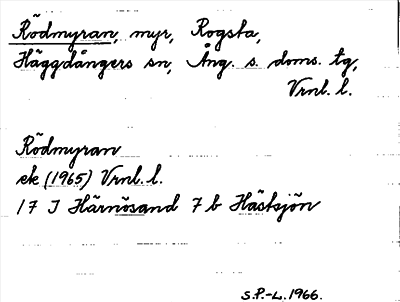 Rödmyran, myr, Rogsta,
Häggdångers sn, Ång. s. doms. tg,
Vrnl. l.
Rödmyran
ek (1965) Vrnl. l.
17 I Härnösand 7 b Hästsjön
S.P.-L. 1966.